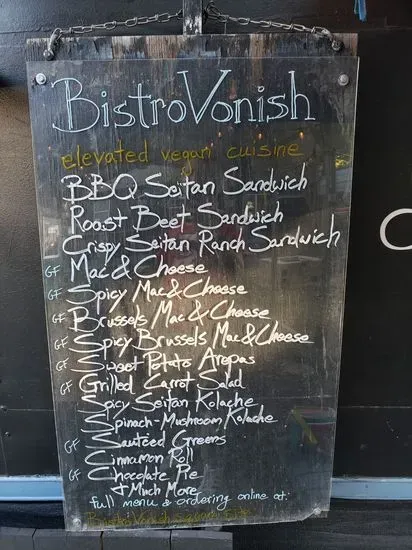 BistroVonish
elevated vegan cuisine
BBQ Seitan Sandwich
Roast Beet Sandwich
Crispy Seitan Ranch Sandwich
GF Mac & Cheese
GF Spicy Mac & Cheese
GF Brussels Mac & Cheese
GF Spicy Brussels Mac & Cheese
GF Sweet Potato Arepas
GF Grilled Carrot Salad
Spicy Seitan Kolache
Spinach-Mushroom Kolache
GF Sauteed Greens
Cinnamon Roll
GF Chocolate Pie
& Much More
full menu & ordering online at:
Bistro Vonish Square Site